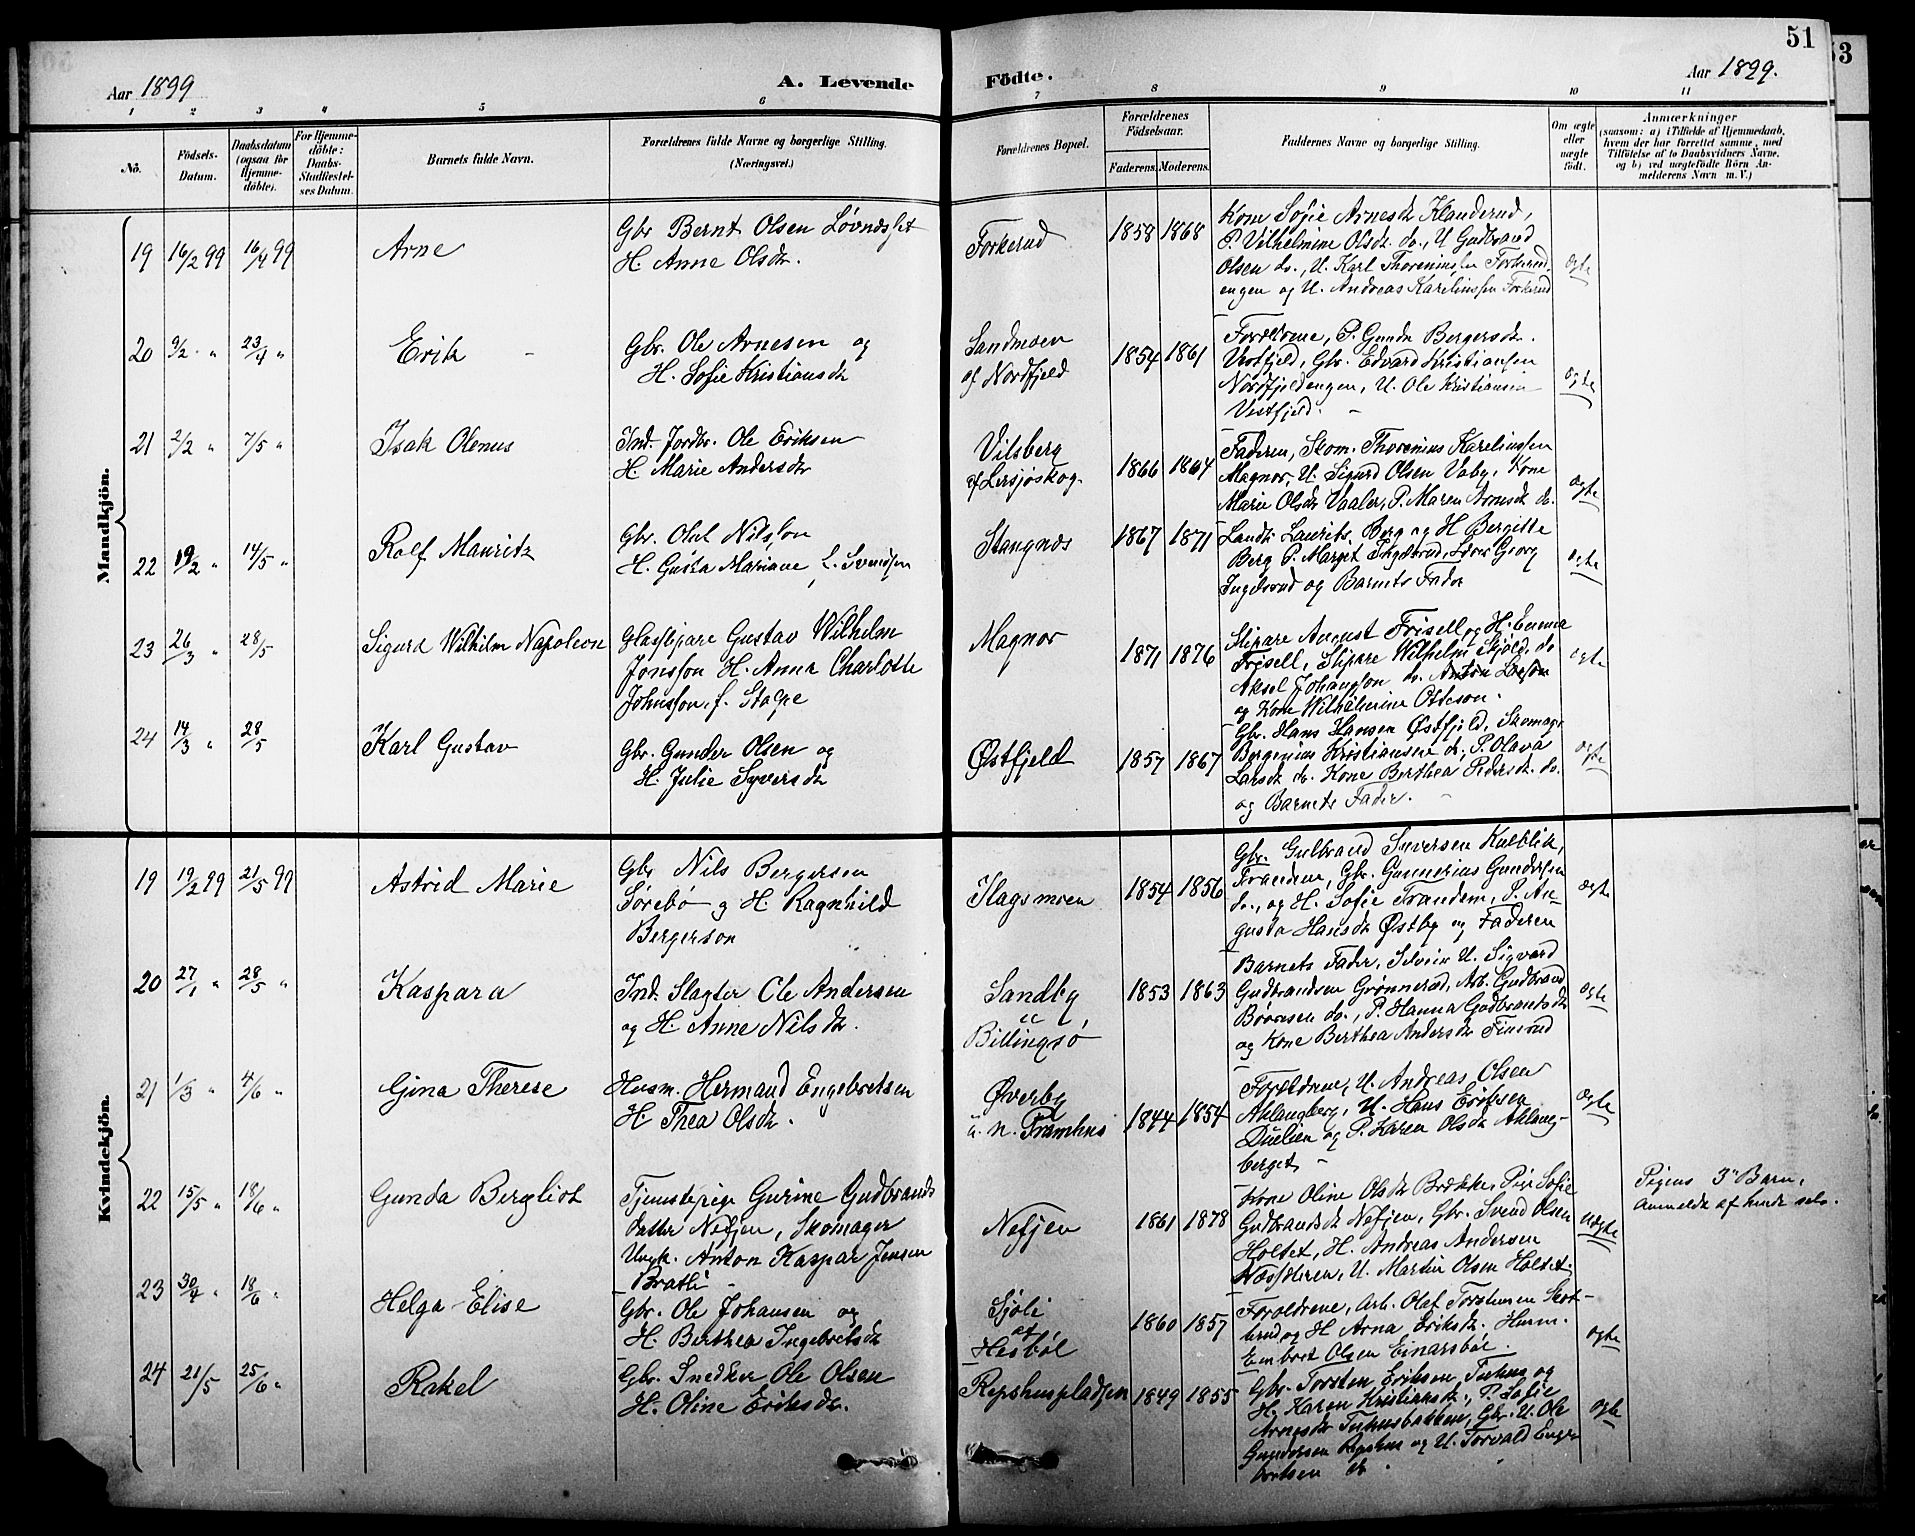 51
53
Aar 1899
A. Levende
Födte.
Aar 1899.
1 2 3 4 5 6 7 8 9 10 11
No.
Födsels-
Datum.
Daabsdatum
(ogsaa for
Hjemme-
döbte).
For Hjemme-
döbte:
Daabs-
Stadfæstel-
ses Datum.
Barnets fulde Navn.
Forældrenes fulde Navne og borgerlige Stilling.
(Næringsvei.)
Forældrenes Bopæl.
Forældrenes
Födselsaar.
Faderens. Moderens.
Faddernes Navne og borgerlige Stilling.
Om ægte
eller
uægte
födt.
Anmærkninger
(saasom: a) i Tilfælde af Hjemmedaab,
hvem der har forrettet samme, med
Tilföielse af to Daabsvidners Navne,
og b) ved uægtefödte Börn An-
melderens Navn m. V.)
Mandkjön.
19 16/2 99 16/4 99 Arne
Gbr Bernt Olsen Løvnæsset
H. Anne Olsdr.
Forkerud
1858 1868
Kone Sofie Arnesdr Klanderud,
P. Vilhelmine Olsdr. do., U Gudbrand
Olsen do., U. Karl Thoreniussen Forkerud
engen og U. Andreas Kareliussen Forkerud
ægte
20 9/2 " 23/4 " Erik
Gbr. Ole Arnesen og
H. Sofie Kristiansdr
Sandmoen
af Nordfjeld
1854 1861
Forældrene, P. Gunda Bergersdr.
Vestfjeld, Gbr. Edvard Kristiansen
Nordfjeldengen, U. Ole Kristiansen
Vestfjeld.
ægte
21 2/2 " 7/5 " Isak Olenus
Ind. Jordbr. Ole Eriksen
H. Marie Andersdr
Vilsberg
af Lersjøskog
1866 1864
Faderen, Skom. Thorenius Kareliussen
Magnor, U. Sigurd Olsen Vaby, Kone
Marie Olsdr Vaaler, P. Maren Arnesdr do.
ægte
22 19/2 " 14/5 " Rolf Mauritz
Gbr. Olat Nilsson
H. Gusta Mariane f. Svendsen
Stangnæs
1867 1871
Landh. Laurits Berg og H Bergitte
Berg P. Marget Ingelsrud, Georg
Ingelsrud og Barnets Fader
ægte
23 26/3 " 28/5 Sigurd Wilhelm Napoleon
Glasslipare Gustav Wilhelm
Jonsson H. Anna Charlotte
Johnsson, f. Stope
Magnor
1871 1876
Slipare August Frisell og H. Emma
Frisell, Slipare Wilhelm Skjöld, do
Aksel Johansson do. Anton
og Kone Wilhelmine Otteson.
ægte
24 14/3 " 28/5 Karl Gustav
Gbr. Gunder Olsen og
H. Julie Syversdr
Østfjeld
1857 1867
Gbr. Hans Hansen Østfjeld, Skomager
Bergenius Kristiansen do., P. Olava
Larsdr do. Kone Berthea Pedersdr. do.
og Barnets Fader.
ægte
Kvindekjön.
19 19/2 99 21/5 99 Astrid Marie
Gbr Nils Bergersen
Sørebø og H. Ragnhild
Bergerson
Slagsmoen
1854 1856
Gbr. Gulbrand Syversen Kulblik,
Trandem, Gbr. Gunnerius Gundersen
do., og H. Sofie Trandem, P. Au-
gusta Hansdr Østby og Faderen
ægte
20 27/1 " 28/5 " Kaspara
Ind. Slagter Ole Andersen
og H. Anne Nilsdr.
Sandby
u
Billingsø
1853 1863
Barnets Fader, Selveier U. Sigvard
Gudbrandsen Grønnerud, Arb. Gudbrand
Børresen do., P. Hanna Gudbrandsdr
og Kone Berthea Andersdr Finsrud
ægte
21 1/3 " 4/6 " Gina Therese
Husm. Hermand Engebretsen
H. Thea Olsdr.
Øverby
u. N. Framhus
1844 1854
Forældrene, U. Andreas Olsen
Aklangberg, U. Hans Eriksen
Duelien og P. Karen Olsdr Aklang-
berget
ægte
22 15/5 " 18/6 " Gunda Bergliot
Tjenestepige Gurine Gudbrands
datter Nefjen, Skomager
Ungk. Anton Kaspar Jensen
Bratli
Nefjen
1861 1878
Kone Oline Olsdr Brække, Pige Sofie
Gudbrandsdr Nefjen, Gbr. Svend Olsen
Holtet, H. Andreas Andersen
Næssderen, U. Martin Olsen Holtet.
uægte
Pigens 3" Barn,
Anmeldt af hende selv.
23 30/4 18/6 " Helga Elise
Gbr. Ole Johansen og
H. Berthea Ingebretsdr
Sjøli
af
Hesbøl
1860 1857
Forældrene, Arb. Olaf Torstensen Skot-
terud og H Arna Eriksdr. Husm.
Embret Olsen Einarsbøl.
ægte
24 21/5 25/6 " Rakel
Gbr. Snedker Ole Olsen
H. Oline Eriksdr.
Repshuspladsen
1849 1855
Gbr. Torsten Eriksen Tuhus og
H. Karen Kristiansdr, P. Sofie
Arnesdr Tuhusbakken, Gbr. U. Ole
Gundersen Repshus og U. Torvald Enge-
bretsen do
ægte